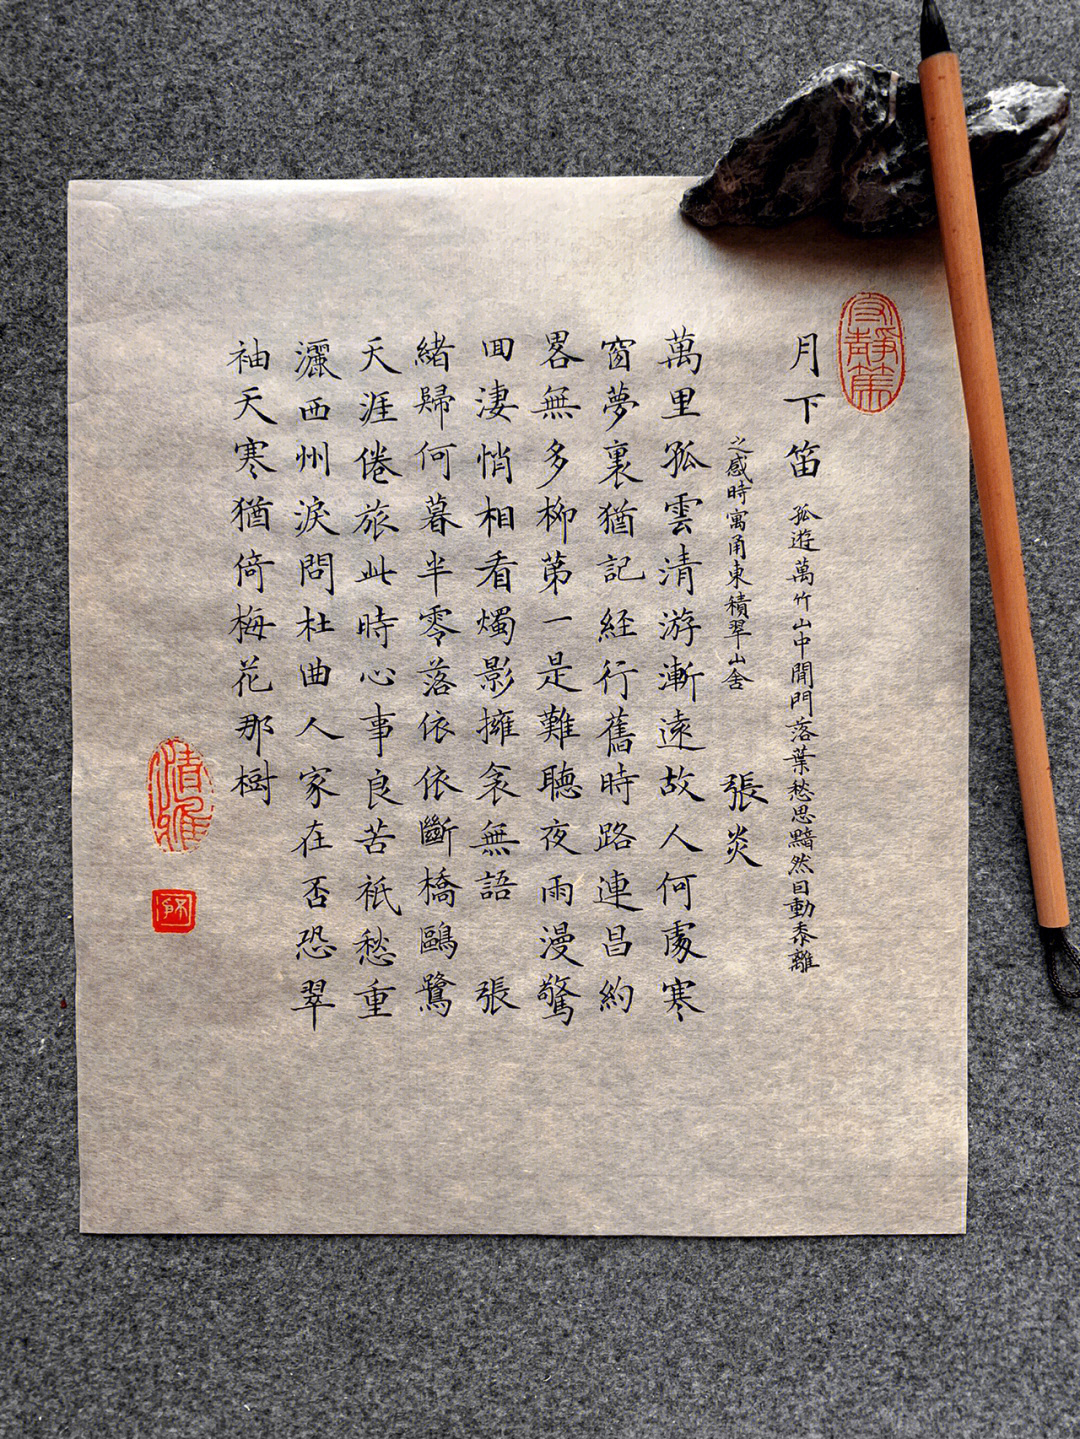 月下笛 孤遊萬竹山中閒門落葉愁思黯然因動黍離
之感時寓甬東積翠山舍 張炎
萬里孤雲清游漸遠故人何處寒
窗夢裏猶記經行舊時路連昌約
畧無多柳苐一是難聽夜雨漫驚
回淒悄相看燭影擁衾無語 張
緒歸何暮半零落依依斷橋鷗鷺
天涯倦旅此時心事良苦衹愁重
灑西州淚問杜曲人家在否恐翠
袖天寒猶倚梅花那樹